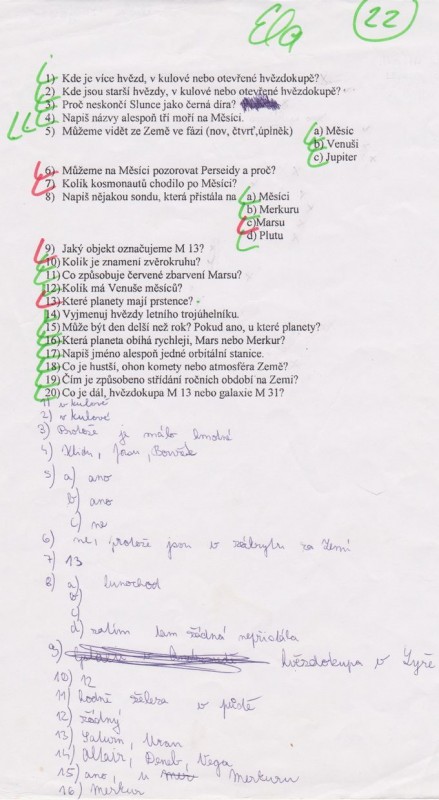 Ela
22
1) Kde je více hvězd, v kulové nebo otevřené hvězdokupě?
2) Kde jsou starší hvězdy, v kulové nebo otevřené hvězdokupě?
3) Proč neskončí Slunce jako černá díra?
4) Napiš názvy alespoň tří moří na Měsíci.
5) Můžeme vidět ze Země ve fázi (nov, čtvrť,úplněk) a) Měsíc
b) Venuši
c) Jupiter
6) Můžeme na Měsíci pozorovat Perseidy a proč?
7) Kolik kosmonautů chodilo po Měsíci?
8) Napiš nějakou sondu, která přistála na a) Měsíci
b) Merkuru
c) Marsu
d) Plutu
9) Jaký objekt označujeme M 13?
10) Kolik je znamení zvěrokruhu?
11) Co způsobuje červené zbarvení Marsu?
12) Kolik má Venuše měsíců?
13) Které planety mají prstence?
14) Vyjmenuj hvězdy letního trojúhelníku.
15) Může být den delší než rok? Pokud ano, u které planety?
16) Která planeta obíhá rychleji, Mars nebo Merkur?
17) Napiš jméno alespoň jedné orbitální stanice.
18) Co je hustší, ohon komety nebo atmosféra Země?
19) Čím je způsobeno střídání ročních období na Zemi?
20) Co je dál, hvězdokupa M 13 nebo galaxie M 31?
1) v kulové
2) v kulové
3) Protože je málo hmotné
4) Klidu, Jasu, Bouře
5) a) ano
b) ano
c) ne
6) ne, protože jsou v zákrytu za Zemí
7) 13
8) a) lunochod
b)
c)
d) zatím tam žádná nepřistála
9) hvězdokupa v Lyře
10) 12
11) hodně železa v půdě
12) žádný
13) Saturn, Uran
14) Altair, Deneb, Vega
15) ano, u Merkuru
16) Merkur